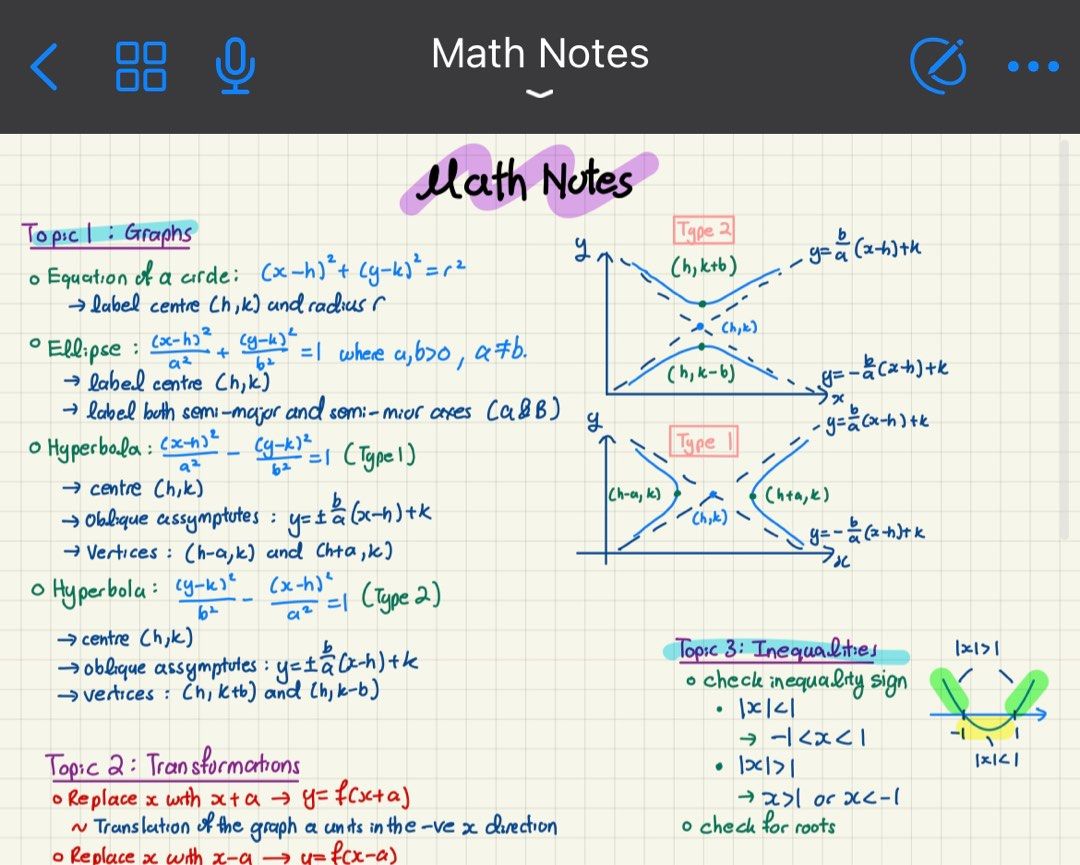 Math Notes
Math Notes
Topic 1 : Graphs
Equation of a circle: (x-h)² + (y-k)² = r²
→ label centre (h,k) and radius r
Ellipse : (x-h)²/a² + (y-k)²/b² = 1 where a,b>0, a≠b.
→ label centre (h,k)
→ label both semi-major and semi-mior axes (a&B)
Hyperbola : (x-h)²/a² - (y-k)²/b² = 1 (Type 1)
→ centre (h,k)
→ Oblique assymptutes : y=±b/a(x-h)+k
→ Vertices : (h-a,k) and (h+a,k)
Hyperbola : (y-k)²/b² - (x-h)²/a² = 1 (Type 2)
→ centre (h,k)
→ oblique assymptutes : y=±b/a(x-h)+k
→ vertices : (h, k+b) and (h, k-b)
Topic 2 : Transformations
Replace x with x+a → y= f(x+a)
~ Translation of the graph a units in the -ve x direction
Replace x with x-a → y= f(x-a)
Type 2
y
(h, k+b)
y=b/a(x-h)+k
(h,k)
(h, k-b)
y=-b/a(x-h)+k
x
Type 1
y
y=b/a(x-h)+k
(h-a, k)
(h,k)
(h+a, k)
y=-b/a(x-h)+k
x
Topic 3: Inequalities
check inequality sign
• |x|<1
→ -1<x<1
• |x|>1
→ x>1 or x<-1
check for roots
|x|>1
-1 1
|x|<1